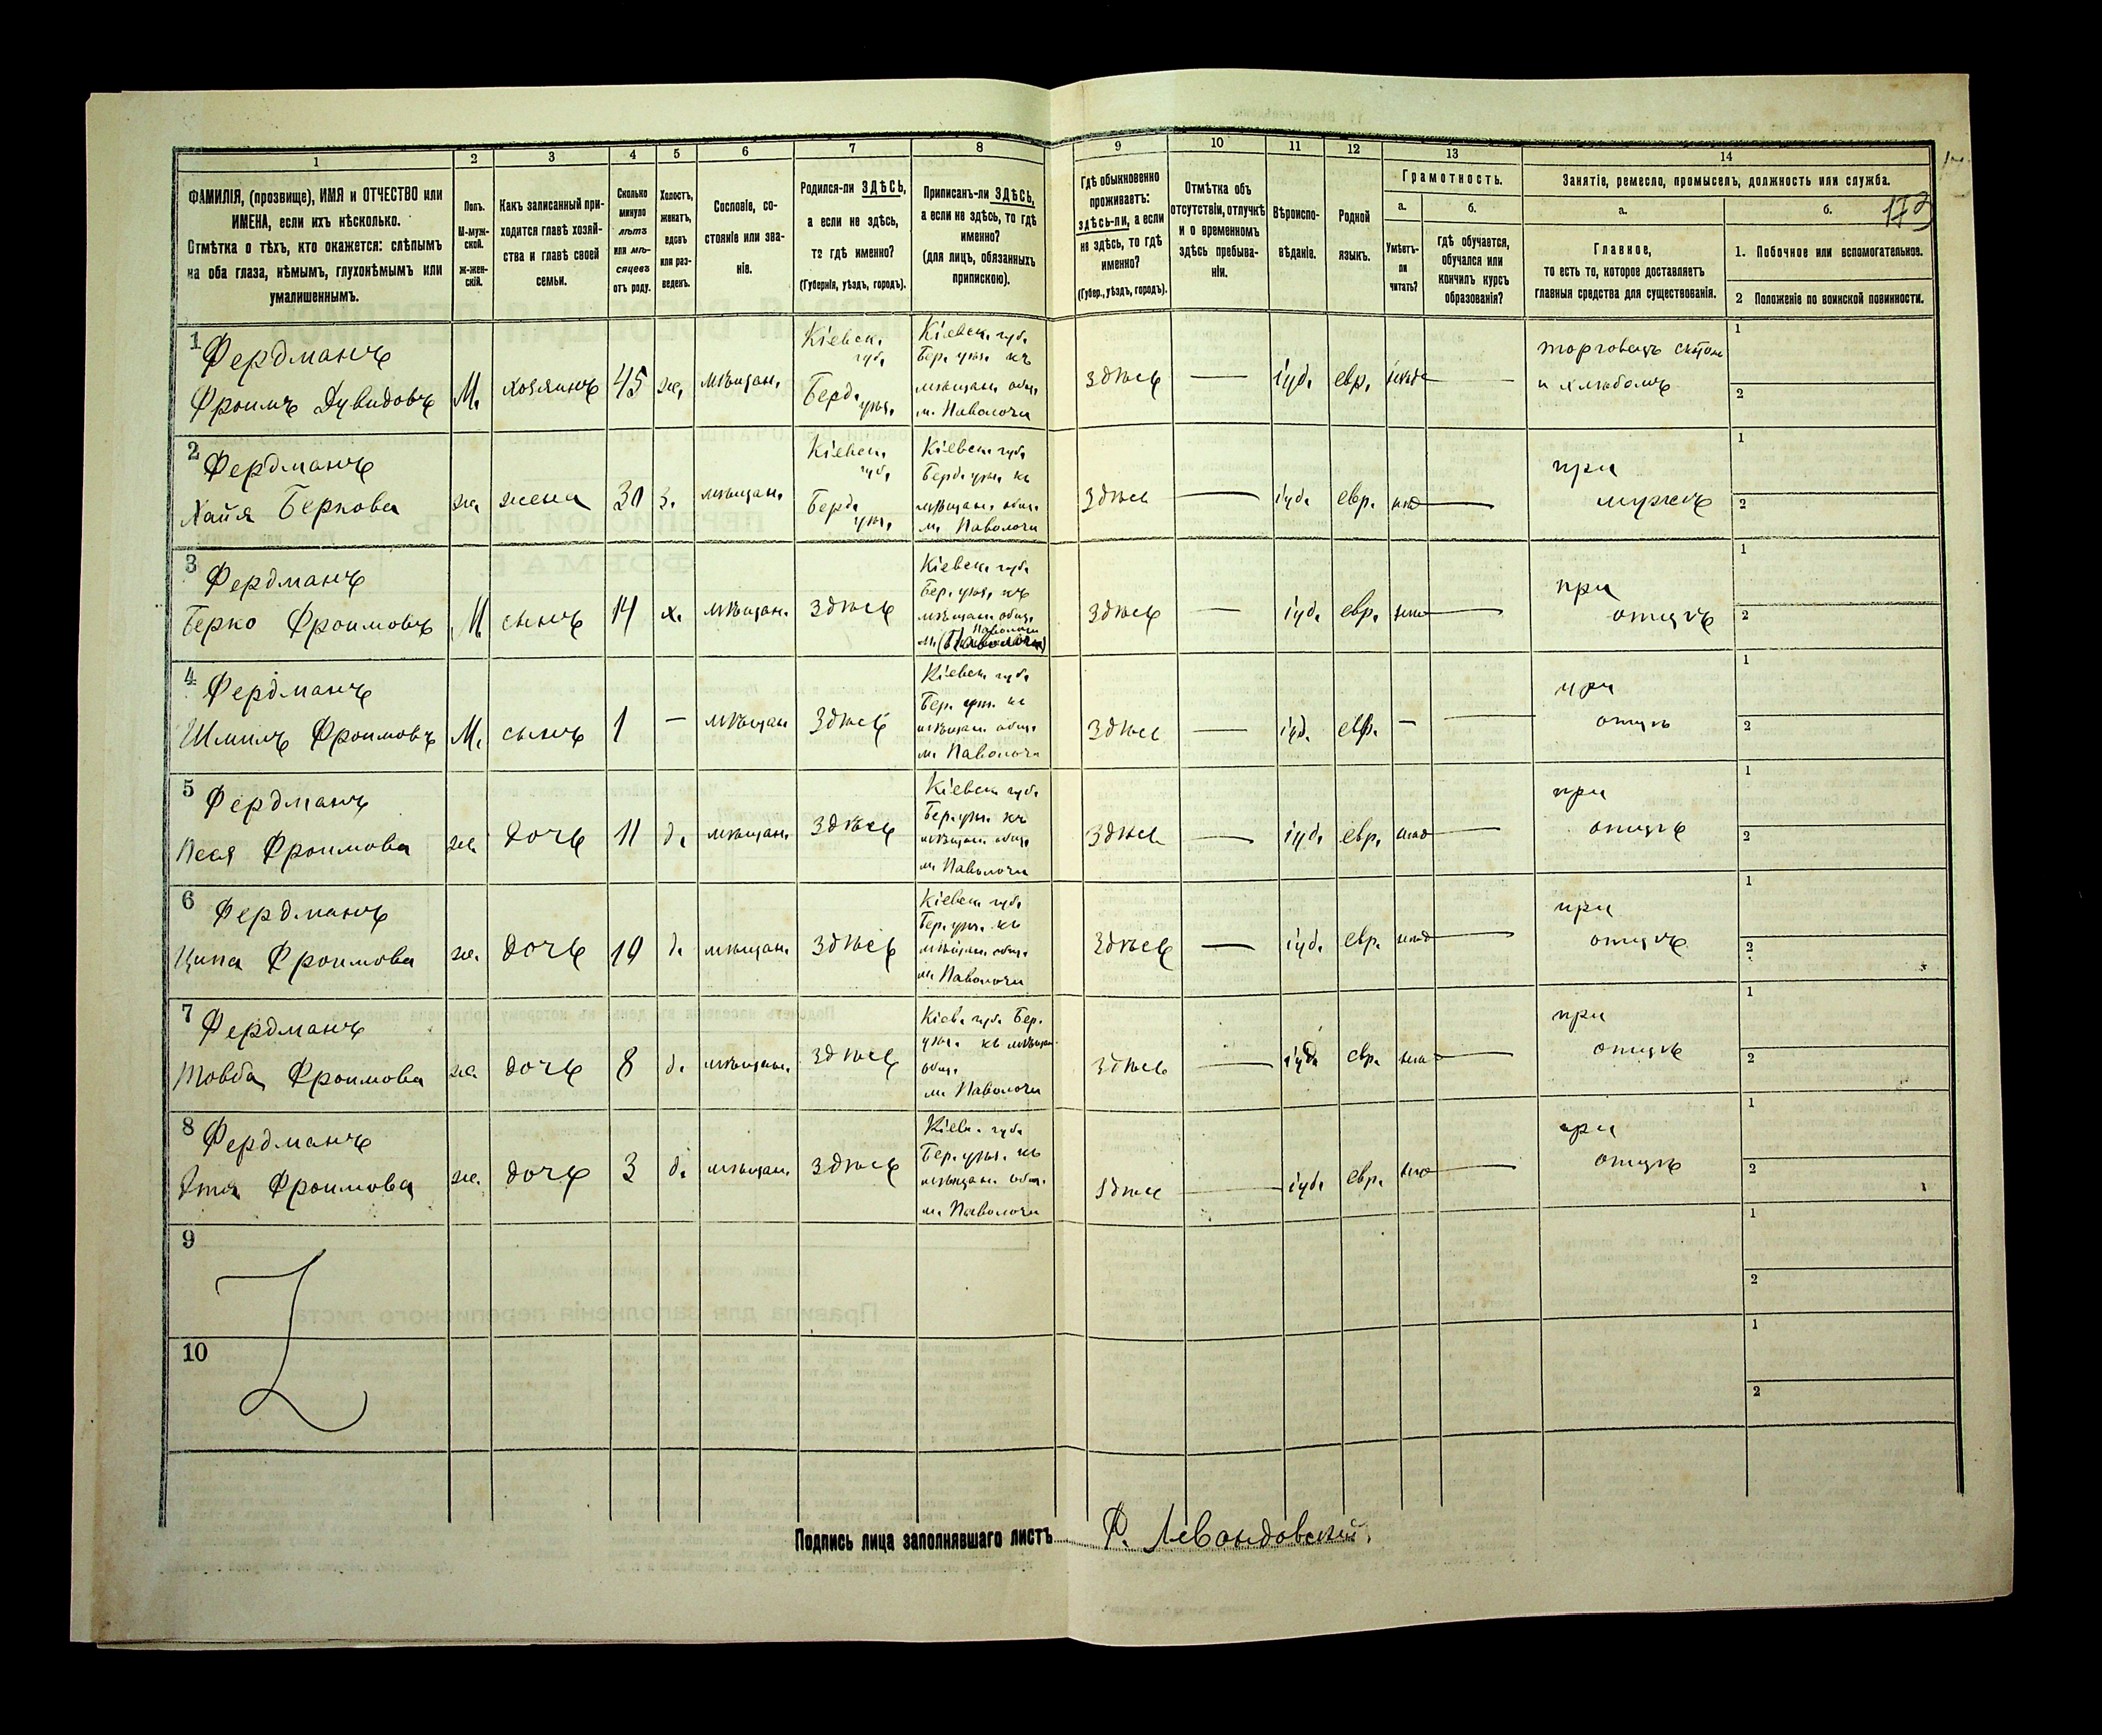 1 2 3 4 5 6 7 8 9 10 11 12 13 14
ФАМИЛІЯ, (прозвище), ИМЯ и ОТЧЕСТВО или
ИМЕНА, если ихъ нѣсколько.
Отмѣтка о тѣхъ, кто окажется: слѣпымъ
на оба глаза, нѣмымъ, глухонѣмымъ или
умалишеннымъ.
Полъ.
М-муж-
ской.
ж-жен-
скій.
Какъ записанный при-
ходится главѣ хозяй-
ства и главѣ своей
семьи.
Сколько
минуло
лѣтъ
или мѣ-
сяцевъ
отъ роду.
Холостъ,
женатъ,
вдовъ
или раз-
веденъ.
Сословіе, со-
стояніе или зва-
ніе.
Родился-ли ЗДѢСЬ,
а если не здѣсь,
то гдѣ именно?
(Губернія, уѣздъ, городъ).
Приписанъ-ли ЗДѢСЬ,
а если не здѣсь, то гдѣ
именно?
(для лицъ, обязанныхъ
припискою).
Гдѣ обыкновенно
проживаетъ:
здѣсь-ли, а если
не здѣсь, то гдѣ
именно?
(Губер., уѣздъ, городъ).
Отмѣтка объ
отсутствіи, отлучкѣ
и о временномъ
здѣсь пребыва-
ніи.
Вѣроиспо-
вѣданіе.
Родной
языкъ.
Грамотность.
а.
Умѣетъ-
ли
читать?
б.
гдѣ обучается,
обучался или
кончилъ курсъ
образованія?
Занятіе, ремесло, промыселъ, должность или служба.
а.
Главное,
то есть то, которое доставляетъ
главныя средства для существованія.
б.
1. Побочное или вспомогательное.
2 Положеніе по воинской повинности.
1
Фердманъ
Фроимъ Дувидовъ
М.
хозяинъ
45
же.
мѣщан.
Кіевск.
губ.
Берд.
уѣз.
Кіевск. губ.
Бер. уѣз. къ
мѣщан. общ.
м. Паволочи
здѣсь
іуд.
евр.
торговецъ скотом
и хлѣбомъ
1
2
2
Фердманъ
Хайя Беркова
же
жена
30
з.
мѣщан.
Кіевск.
губ.
Берд.
уѣз.
Кіевск. губ.
Берд. уѣз. къ
мѣщан. общ.
м. Паволочи
здѣсь
іуд.
евр.
при
мужѣ
1
2
3
Фердманъ
Берко Фроимовъ
М
сынъ
14
х.
мѣщан.
здѣсь
Кіевск. губ.
Бер. уѣз. къ
мѣщан. общ.
м. Паволочи
здѣсь
іуд.
евр.
при
отцѣ
1
2
4
Фердманъ
Шмилъ Фроимовъ
М.
сынъ
1
—
мѣщан
здѣсь
Кіевск. губ.
Бер. уѣз. къ
мѣщан. общ.
м. Паволочи
здѣсь
іуд.
евр.
—
при
отцѣ
1
2
5
Фердманъ
Песя Фроимова
же
дочь
11
д.
мѣщан.
здѣсь
Кіевск. губ.
Бер. уѣз. къ
мѣщан. общ.
м. Паволочи
здѣсь
іуд.
евр.
при
отцѣ
1
2
6
Фердманъ
Ципа Фроимова
же.
дочь
10
д.
мѣщан.
здѣсь
Кіевск. губ.
Бер. уѣз. къ
мѣщан. общ.
м. Паволочи
здѣсь
іуд.
евр.
при
отцѣ
1
2
7
Фердманъ
Товба Фроимова
же
дочь
8
д.
мѣщан.
здѣсь
Кіев. губ. Бер.
уѣз. къ мѣщан.
общ.
м. Паволочи
здѣсь
іуд.
евр.
при
отцѣ
1
2
8
Фердманъ
Этя Фроимова
же.
дочь
3
д.
мѣщан.
здѣсь
Кіев. губ.
Бер. уѣз. къ
мѣщан. общ.
м. Паволочи
здѣсь
іуд.
евр.
при
отцѣ
1
2
9
1
2
10
1
2
Подпись лица заполнявшаго листъ Ф. Левандовскій.